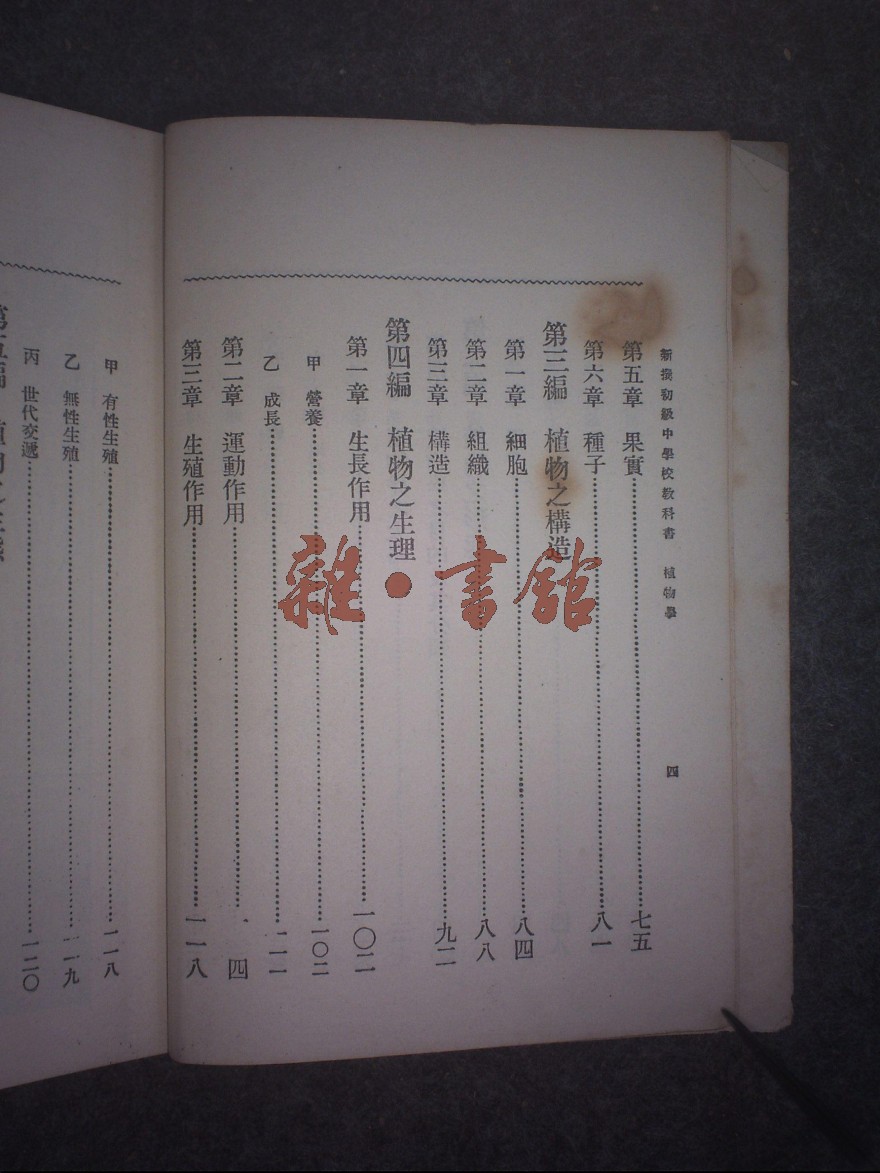 新撰初級中學校教科書 植物學 四
第五章 果實 七五
第六章 種子 八一
第三編 植物之構造
第一章 細胞 八四
第二章 組織 八八
第三章 構造 九二
第四編 植物之生理
第一章 生長作用 一〇二
甲 營養 一〇二
乙 成長 一一一
第二章 運動作用 一四
第三章 生殖作用 一一八
甲 有性生殖 一一八
乙 無性生殖 一一九
丙 世代交遞 一二〇
第五編 植物
雜·書館